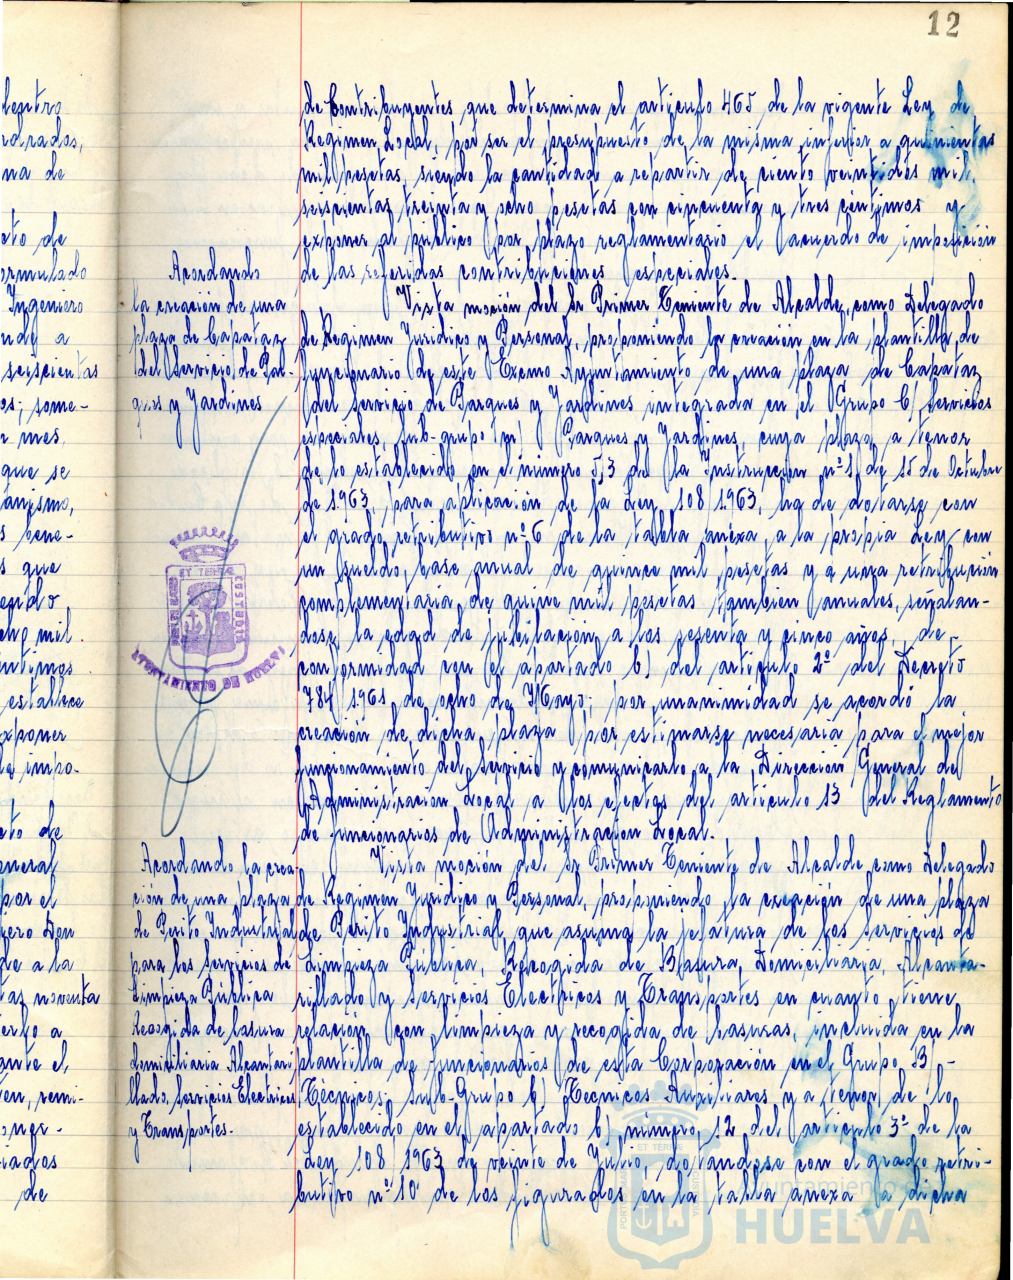 12
de Contribuyentes que determina el articulo 465 de la vigente Ley de
Regimen Local, por ser el presupuesto de la misma inferior a quinientas
mil pesetas, siendo la cantidad a repartir de ciento veintidos mil
seiscientas treinta y ocho pesetas con cincuenta y tres céntimos y
exponer al público por plazo reglamentario el acuerdo de imposición
de las referidas contribuciones especiales.
Acordando
la creación de una
plaza de Capataz
del Servicio de Par-
ques y Jardines
Vista moción del Sr Primer Teniente de Alcalde, como Delegado
de Regimen Juridico y Personal, proponiendo la creación en la plantilla de
funcionario de este Excmo Ayuntamiento de una plaza de Capataz
del Servicio de Parques y Jardines integrada en el Grupo C/ Servicios
especiales, Sub-grupo m) Parques y Jardines, cuya plaza, a tenor
de lo establecido en el número 5,3 de la Instrucción nº 1 de 15 de Octubre
de 1.963, para aplicación de la Ley 108/1.963, ha de dotarse con
el grado retributivo nº 6 de la tabla anéxa, a la própia Ley con
un sueldo base anual de quince mil pesetas y a una retribución
complementaria de quine mil pesetas tambien anuales, señalan-
dose la edad de jubilación a los sesenta y cinco años, de
conformidad con el apartado b) del articulo 2º del Decreto
784/1.961 de ocho de Mayo; por unanimidad se acordó la
creación de dicha plaza por estimarse necesaria para el mejor
funcionamiento del Servicio y comunicarlo a la Dirección General de
Administración Local a los efectos del articulo 13 del Reglamento
de funcionarios de Administración Local.
ET TERRE CUSTODIA
AYUNTAMIENTO DE HUELVA
Acordando la crea
ción de una plaza
de Perito Industrial
para los Servicios de
Limpieza Pública
Recogida de basura
domiciliaria Alcantari
llado, Servicios Electricos
y Transportes.
Vista moción del Sr Primer Teniente de Alcalde como Delegado
de Regimen Juridico y Personal, proponiendo la creación de una plaza
de Perito Industrial, que asuma la jefatura de los servicios de
Limpieza Pública, Recogida de Basura, Domiciliaria, Alcanta-
rillado y Servicios Electricos y Transportes en cuanto tiene
relación con limpieza y recogida de basuras, incluida en la
plantilla de funcionarios de esta Corporación en el Grupo B/-
Técnicos, Sub-Grupo b) Tecnicos Auxiliares y a tenor de lo
establecido en el apartado b, número 12 del articulo 3º de la
Ley 108/1963 de veinte de Julio, dotandose con el grado retri-
butivo nº 10 de los figurados en la tabla anexa a dicha
Ayuntamiento de
HUELVA